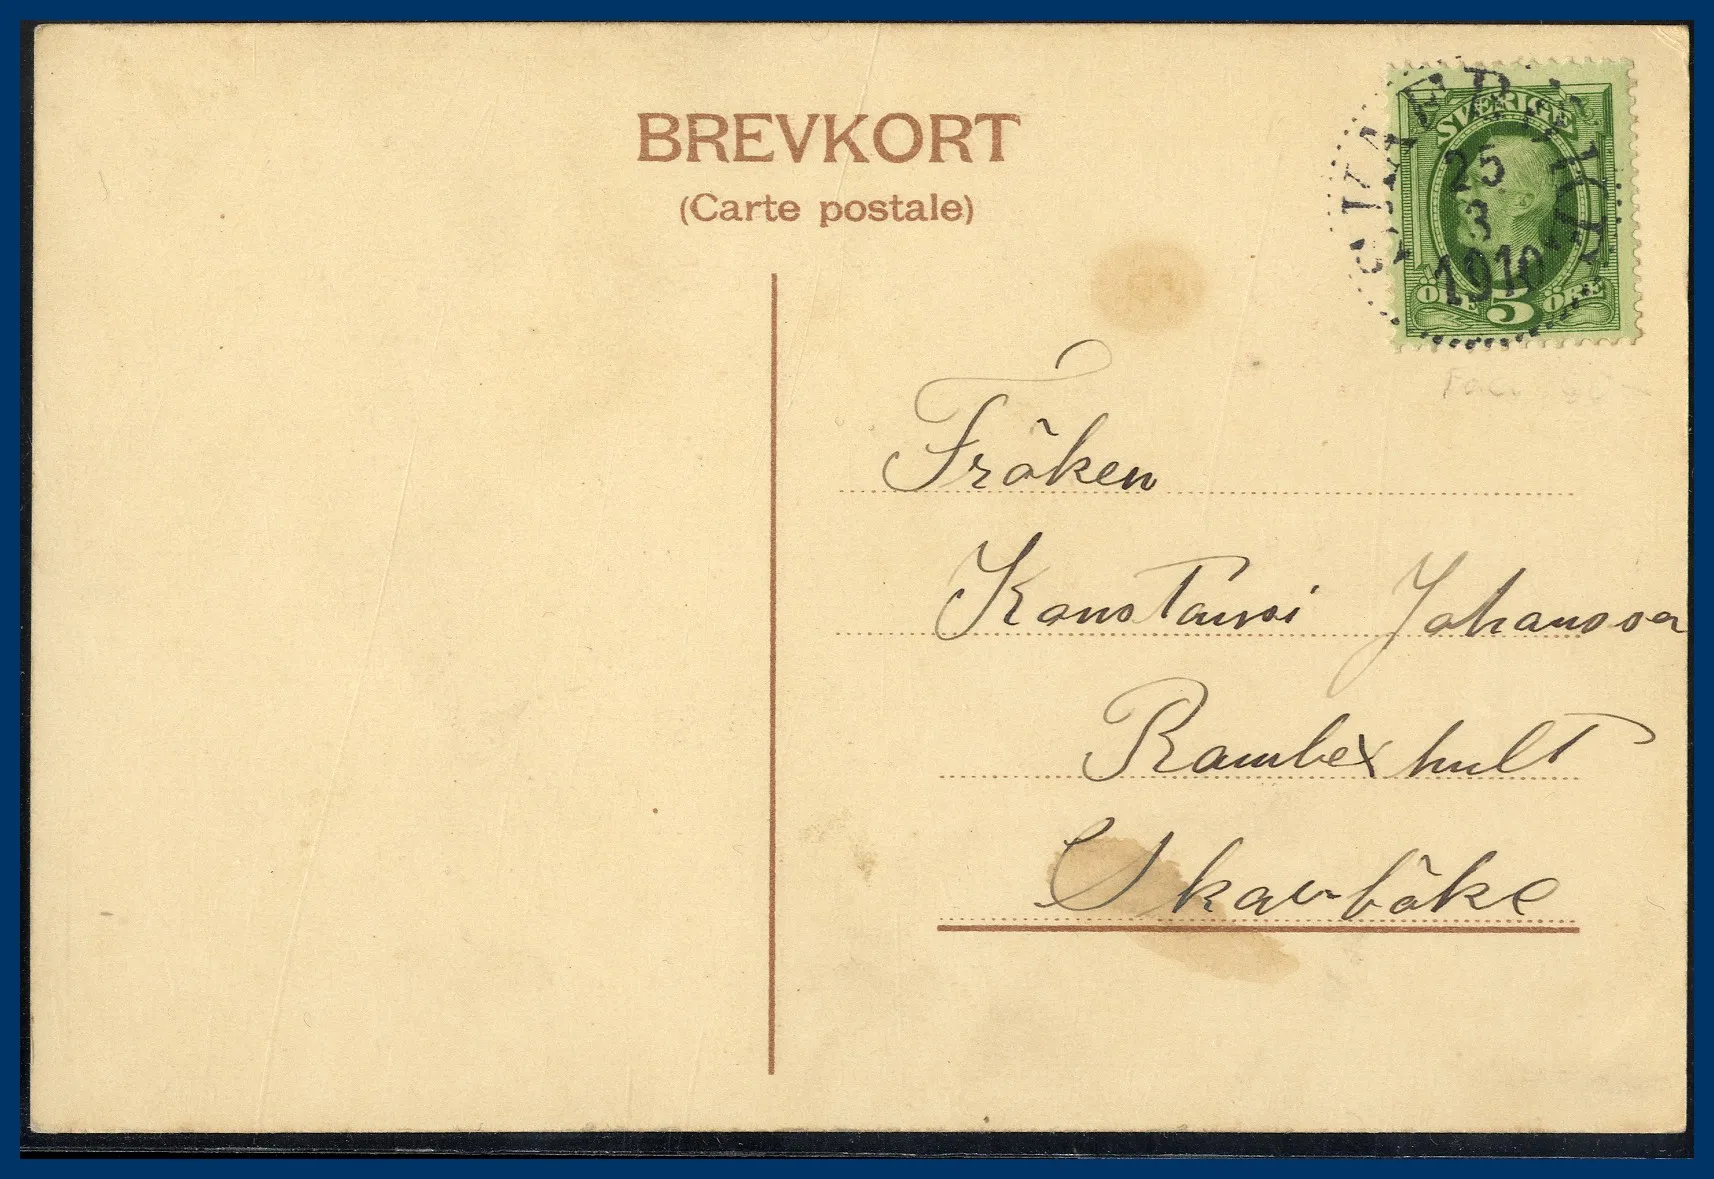 BREVKORT
(Carte postale)
SVERIGE
25
3
1910
ÖRE 5 ÖRE
Fröken
Konstansi Johansson
Rambexhult
Skavböke